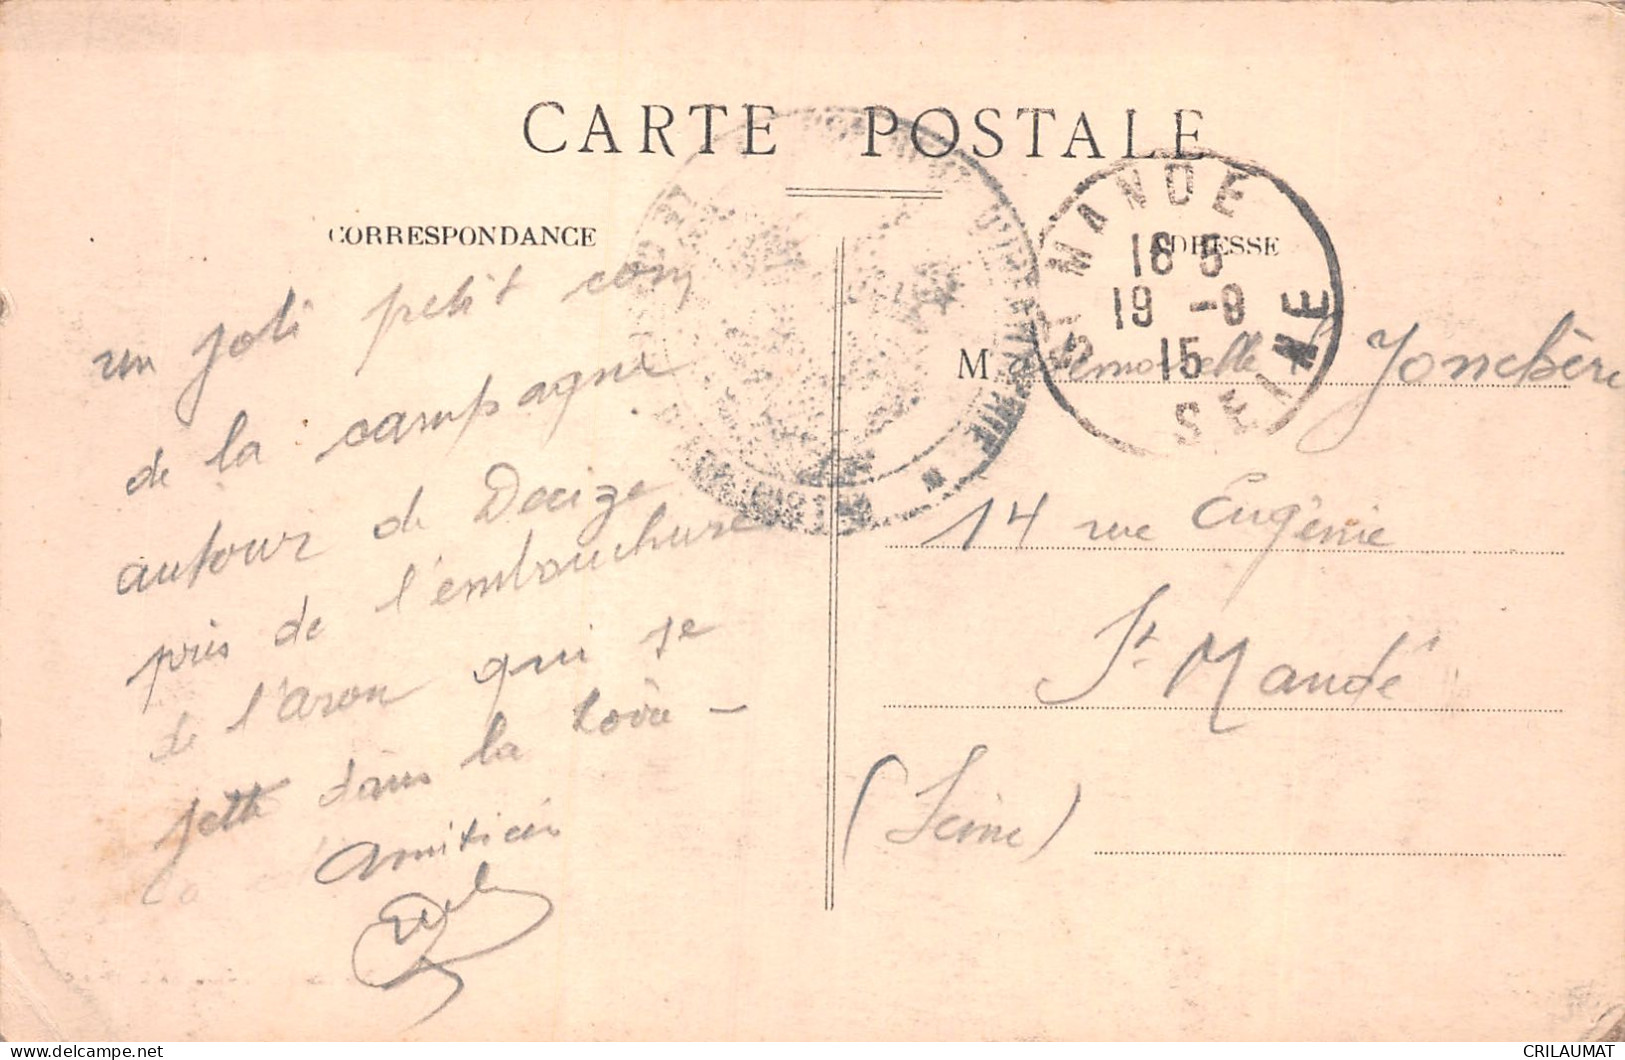 CARTE POSTALE
CORRESPONDANCE
un joli petit coin
de la campagne
autour de Decize
près de l'embouchure
de l'aron qui se
jette dans la Loire –
Amitiés
ADRESSE
ST MANDE
18 5
19 -8
15
SEINE
Mademoiselle Jonchère
14 rue Eugénie
St Mandé
(Seine)
delcampe.net
CRILAUMAT